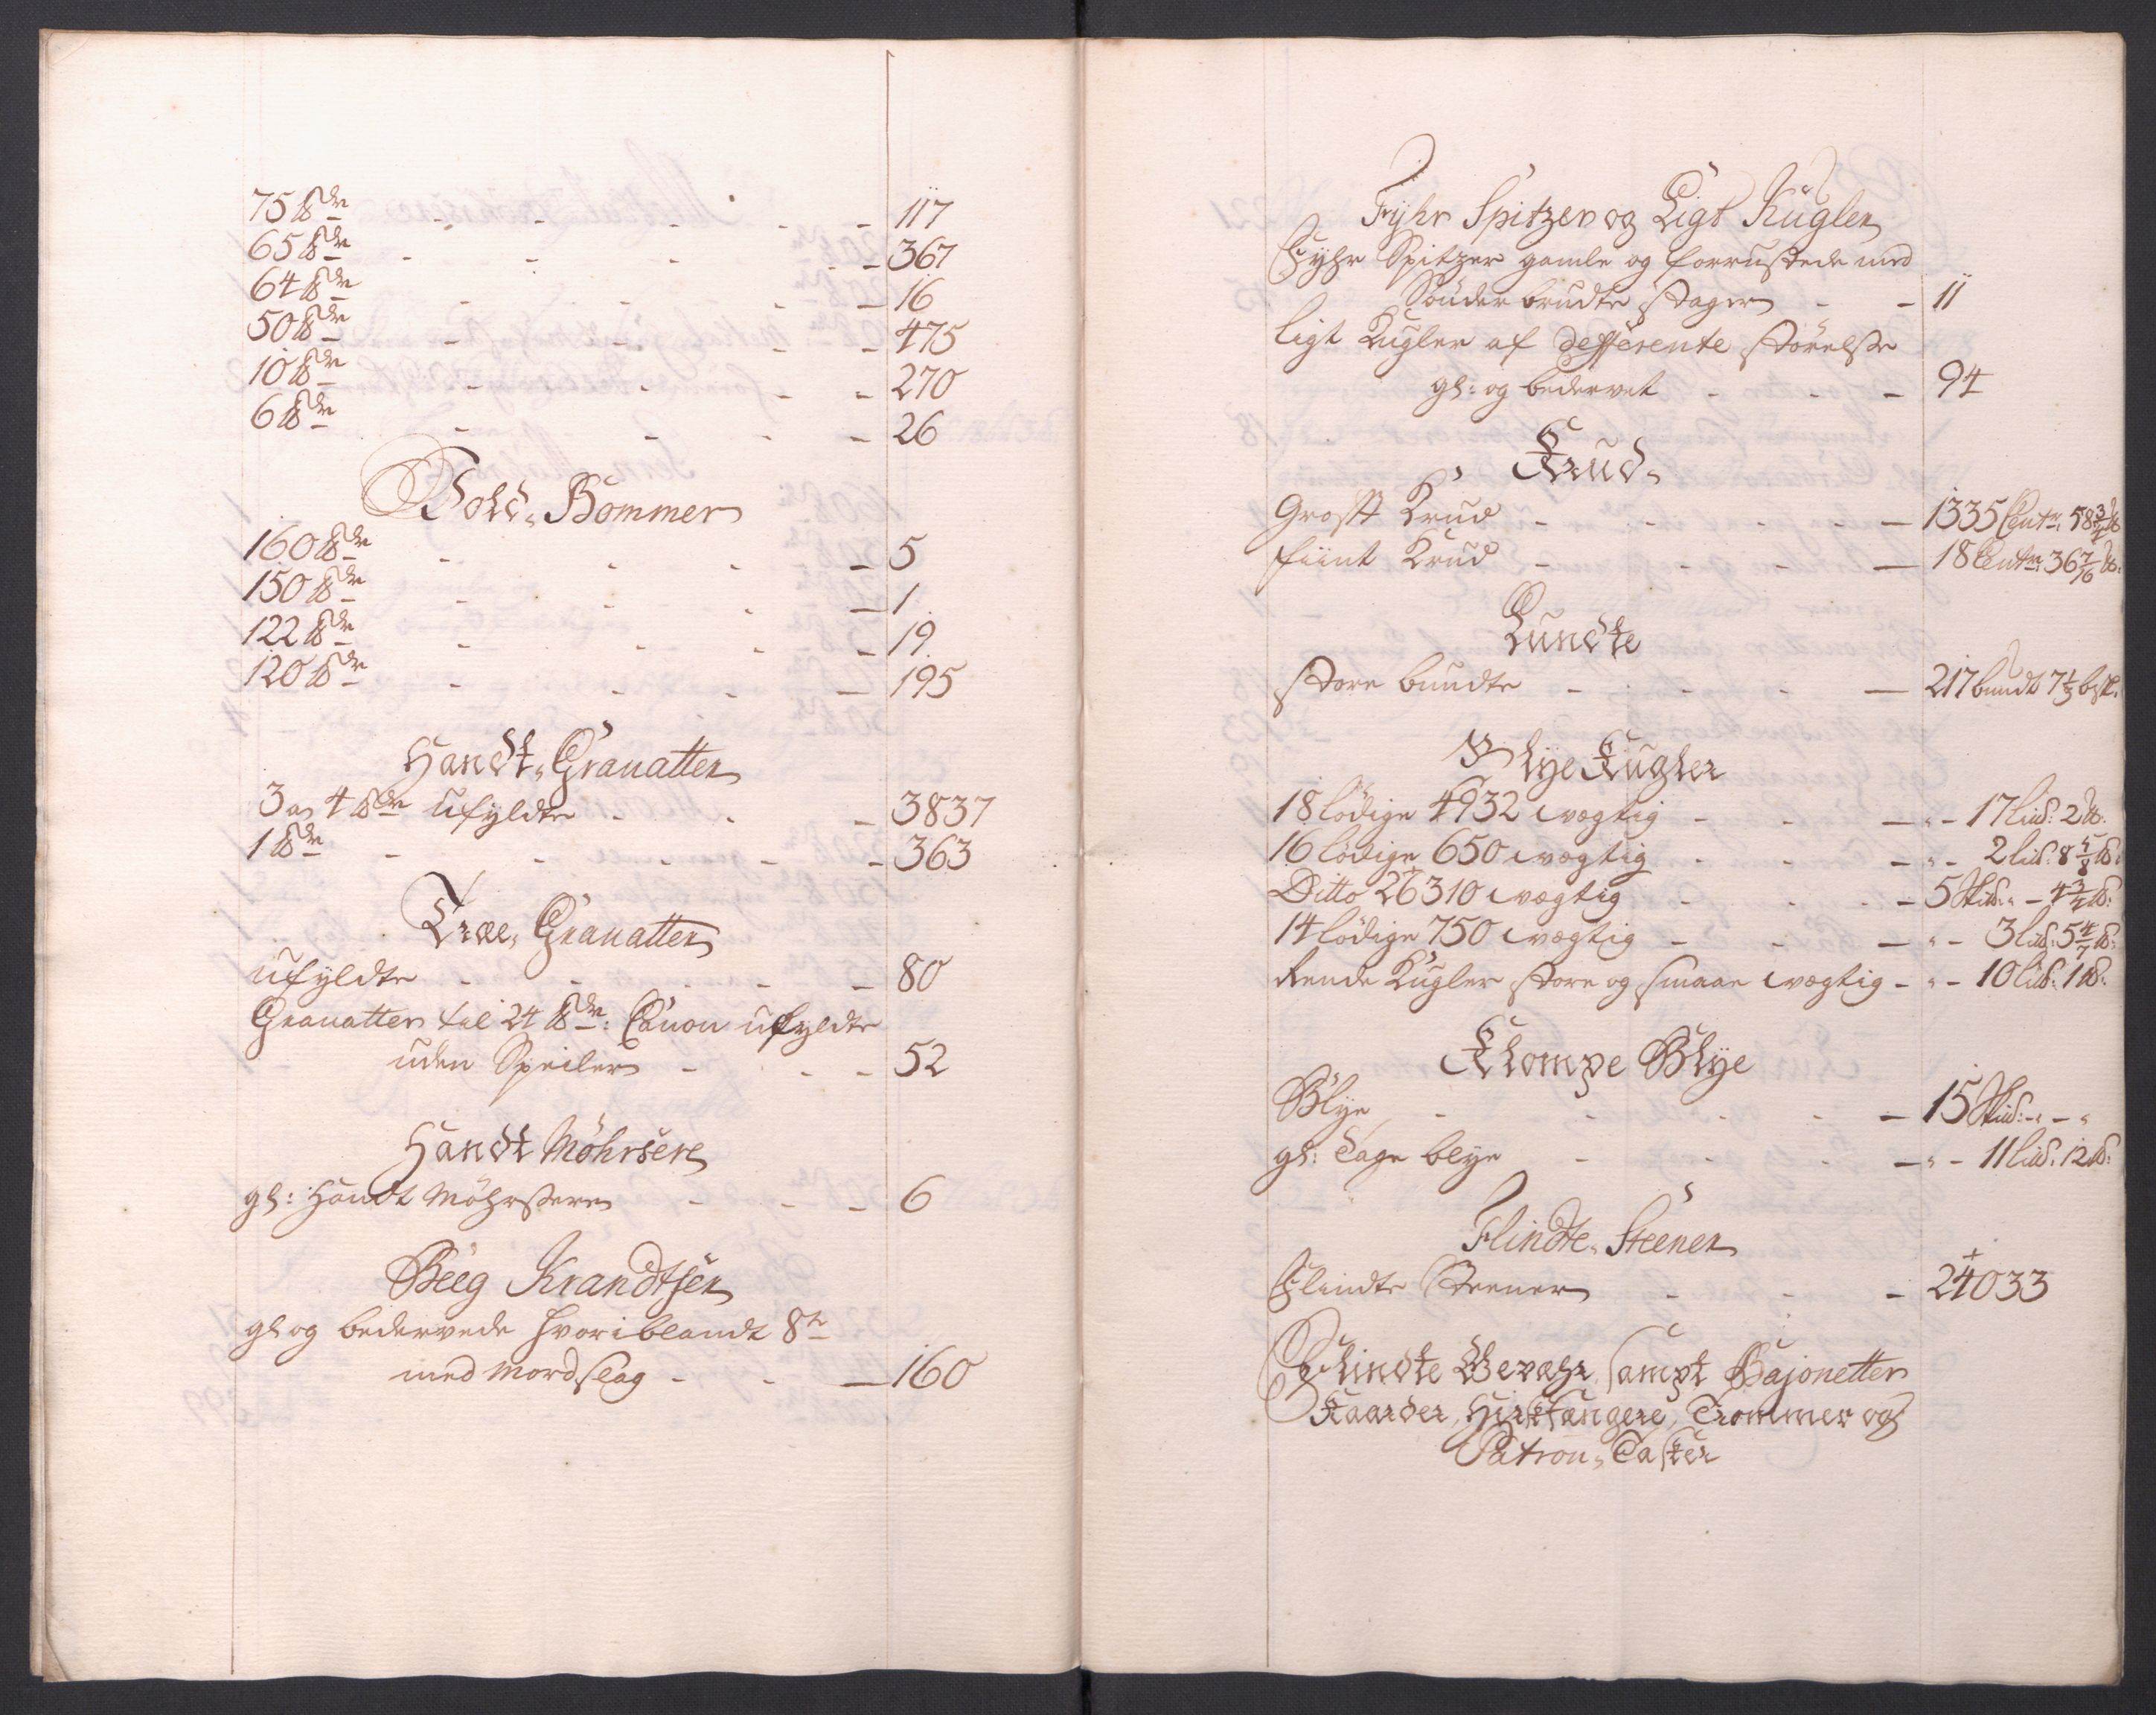 75 ℔de - - - - - 117
65 ℔de - - - - - 367
64 ℔de - - - - 16
50 ℔de - - - - 475
10 ℔de - - - - 270
6 ℔de - - - - 26
Hold. Bommer
160 ℔de - - - - 5
150 ℔de - - - - 1
122 ℔de - - - - 19
120 ℔de - - - - 195
Handt. Granatter
3 a 4 ℔de ufyldte - - - 3837
1 ℔de - - - - - 363
Træe. Granatter
ufyldte - - - - - 80
Granatter til 24 ℔de: Canon ufyldte
uden Speiler - - - 52
Handt Möhrsere
gl: Handt Möhrsere - - - 6
Beeg Krandtser
gl og bedervede hvoriblandt 8te
med Mordslag - - - 160
Fyhr Spitzer og Ligt Kugler
Fyhr Spitzer gamle og forrustede med
Sönderbrudte Stager - - 11
Ligt Kugler af defferente Störelse
gl: og bedervet - - - 94
Krud
Groft Krud - - - - - 1335 Centr: 58 3/4 ℔
fiint Krud - - - - 18 Centr: 36 7/16 ℔:
Lundte
Store bundte - - - - 217 bundt 7 1/2
Blye Kugler
18 lödige 4932 vægtig - - - - 17 Lis℔: 2 ℔:
16 lödige 650 vægtig - - - - 2 lis℔: 8 5/8 ℔:
Ditto 26310 vægtig - - - 5 Skis℔: - 4 3/4 ℔:
14 lödige 750 vægtig - - - - 3 lis℔: 5 4/7 ℔:
Rende Kugler store og smaae vægtig - - 10 lis℔: 1 ℔:
Klompe Blye
Blye - - - - - 15 Skis℔: - -
gl: Tage blye - - - - - 11 lis℔: 12 ℔:
Flindte. Steener
Flindte Steener - - - 24033
Flindte Gevæhr sampt Bajonetter
Kaarder, Hirsfængere, Trommer og
Patron. Tasker